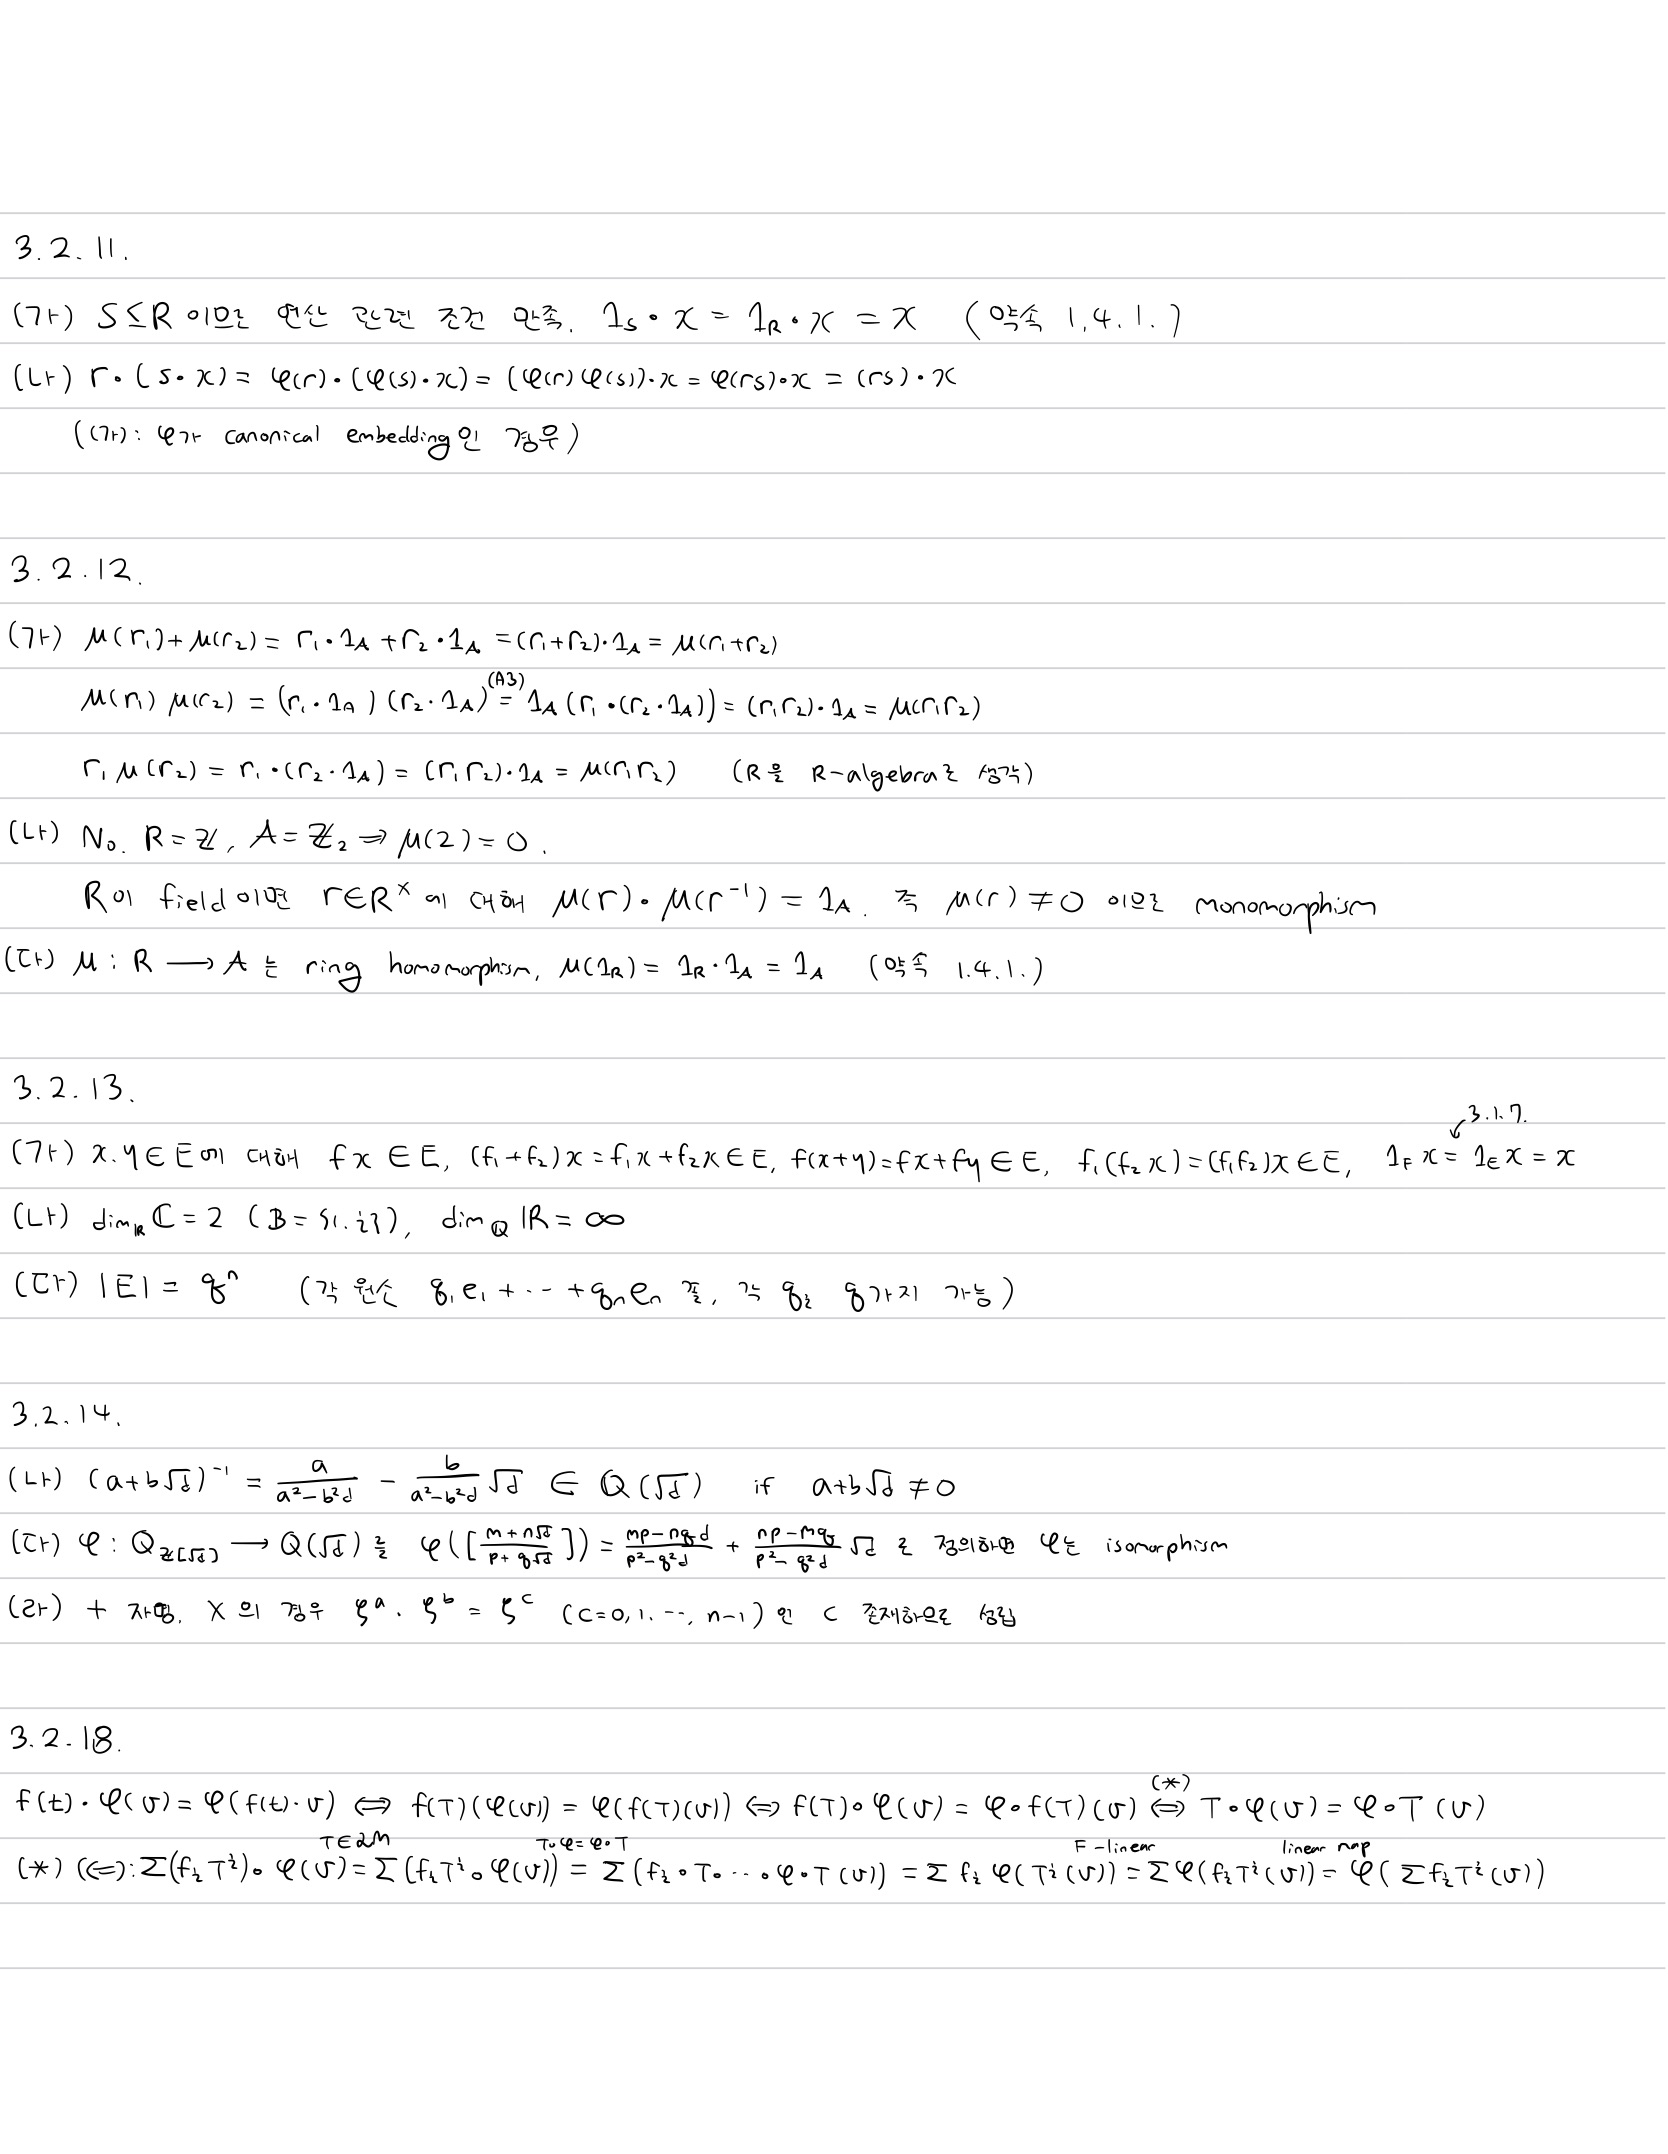 3.2.11.
(가) S≤R 이므로 연산 관련 조건 만족. 1_S · x = 1_R · x = x (약속 1.4.1.)
(나) r · (s · x) = φ(r) · (φ(s) · x) = (φ(r) φ(s)) · x = φ(rs) · x = (rs) · x
((가) : φ가 canonical embedding인 경우)
3.2.12.
(가) μ(r₁) + μ(r₂) = r₁ · 1_A + r₂ · 1_A = (r₁+r₂) · 1_A = μ(r₁+r₂)
μ(r₁) μ(r₂) = (r₁ · 1_A) (r₂ · 1_A) =^(A3) 1_A (r₁ · (r₂ · 1_A)) = (r₁r₂) · 1_A = μ(r₁r₂)
r₁ μ(r₂) = r₁ · (r₂ · 1_A) = (r₁r₂) · 1_A = μ(r₁r₂) (R을 R-algebra로 생각)
(나) No. R = ℤ, A = ℤ₂ ⇒ μ(2) = 0.
R이 field이면 r∈R^× 에 대해 μ(r) · μ(r⁻¹) = 1_A. 즉 μ(r) ≠ 0 이므로 monomorphism
(다) μ : R ⟶ A 는 ring homomorphism, μ(1_R) = 1_R · 1_A = 1_A (약속 1.4.1.)
3.2.13.
3.1.7.
(가) x, y ∈ E에 대해 fx ∈ E, (f₁+f₂)x = f₁x + f₂x ∈ E, f(x+y) = fx + fy ∈ E, f₁(f₂x) = (f₁f₂)x ∈ E, 1_F x = 1_E x = x
(나) dim_ℝ ℂ = 2 (B = {1, i}), dim_ℚ ℝ = ∞
(다) |E| = qⁿ (각 원소 q₁e₁ + ··· + qₙeₙ 꼴, 각 qᵢ q가지 가능)
3.2.14.
(나) (a+b√d)⁻¹ = a/(a²-b²d) - b/(a²-b²d) √d ∈ ℚ(√d) if a+b√d ≠ 0
(다) φ : Q_ℤ[√d] ⟶ ℚ(√d) 를 φ([(m+n√d)/(p+q√d)]) = (mp-nqd)/(p²-q²d) + (np-mq)/(p²-q²d) √d 로 정의하면 φ는 isomorphism
(라) + 자명. × 의 경우 ζ^a · ζ^b = ζ^c (c=0, 1, ···, n-1) 인 c 존재하므로 성립
3.2.18.
f(t) · φ(v) = φ(f(t) · v) ⟺ f(T)(φ(v)) = φ(f(T)(v)) ⟺ f(T) ∘ φ(v) = φ ∘ f(T)(v) ⟺^(*) T ∘ φ(v) = φ ∘ T(v)
T∈𝓛M T∘φ=φ∘T F-linear linear map
(*) (⇐) : Σ(fᵢTⁱ) ∘ φ(v) = Σ(fᵢTⁱ ∘ φ(v)) = Σ(fᵢ ∘ T ∘ ··· ∘ φ ∘ T(v)) = Σ fᵢ φ(Tⁱ(v)) = Σφ(fᵢTⁱ(v)) = φ(ΣfᵢTⁱ(v))